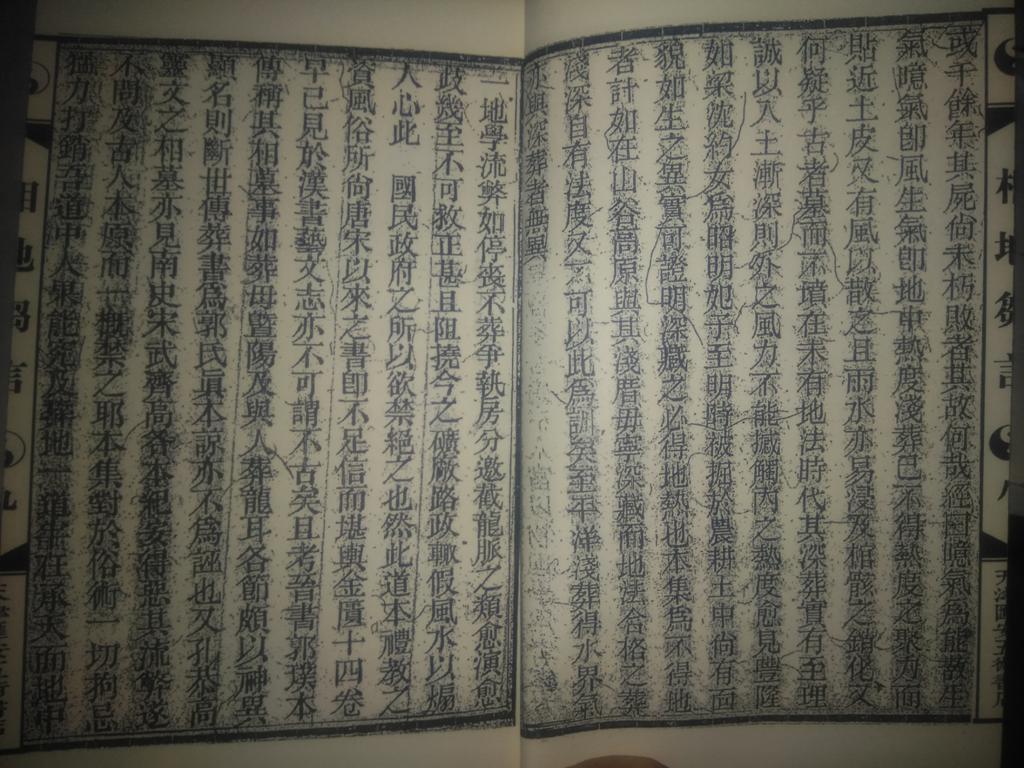 或千餘年其屍尚未朽敗者其故何哉經曰噫氣為能故生
氣噫氣卽風生氣卽地中熱度淺葬已不得熱度之聚力而
貼近土皮又有風以散之且雨水亦易浸及棺骸之銷化又
何疑乎古者墓而不墳在未有地法時代其深葬實有至理
誠以入土漸深則外之風力不能搣觸內之熱度愈見豐隆
如梁沈約女為昭明妃子至明時被掘於農耕土中尚有面
貌如生之異實可證明深藏之必得地熱也本集為不得地
者計如在山谷高原與其淺厝毋寧深藏而地法合格之葬
淺深自有法度又不可以此為訓矣至平洋淺葬得水界氣
亦與深葬者無異
一地學流弊如停喪不葬爭執房分邀截龍脈之類愈演愈
政幾至不可救正甚且阻撓今之礦厰路政輒假風水以煬
人心此 國民政府之所以欲禁絕之也然此道本禮教之
資風俗所尚唐宋以來之書卽不足信而堪輿金匱十四卷
早已見於漢書藝文志亦不可謂不古矣且考晉書郭璞本
傳稱其相墓事如葬母暨陽及與人葬龍耳各節頗以神異
顯名則斷世傳葬書為郭氏真本諒亦不為誣也又孔恭高
靈文之相墓亦見南史宋武齊高各本紀妄得惡其流弊遂
不問及古人本原而一概禁之耶本集對於俗術一切狗忌
猫刀打銷吾道中人果能宛及葬地一道生在承天而地中
相地芻言
八
相地芻言
九